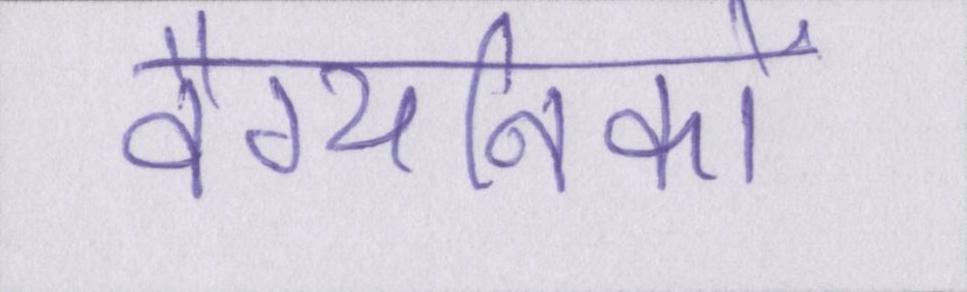 वैग्यनिकों